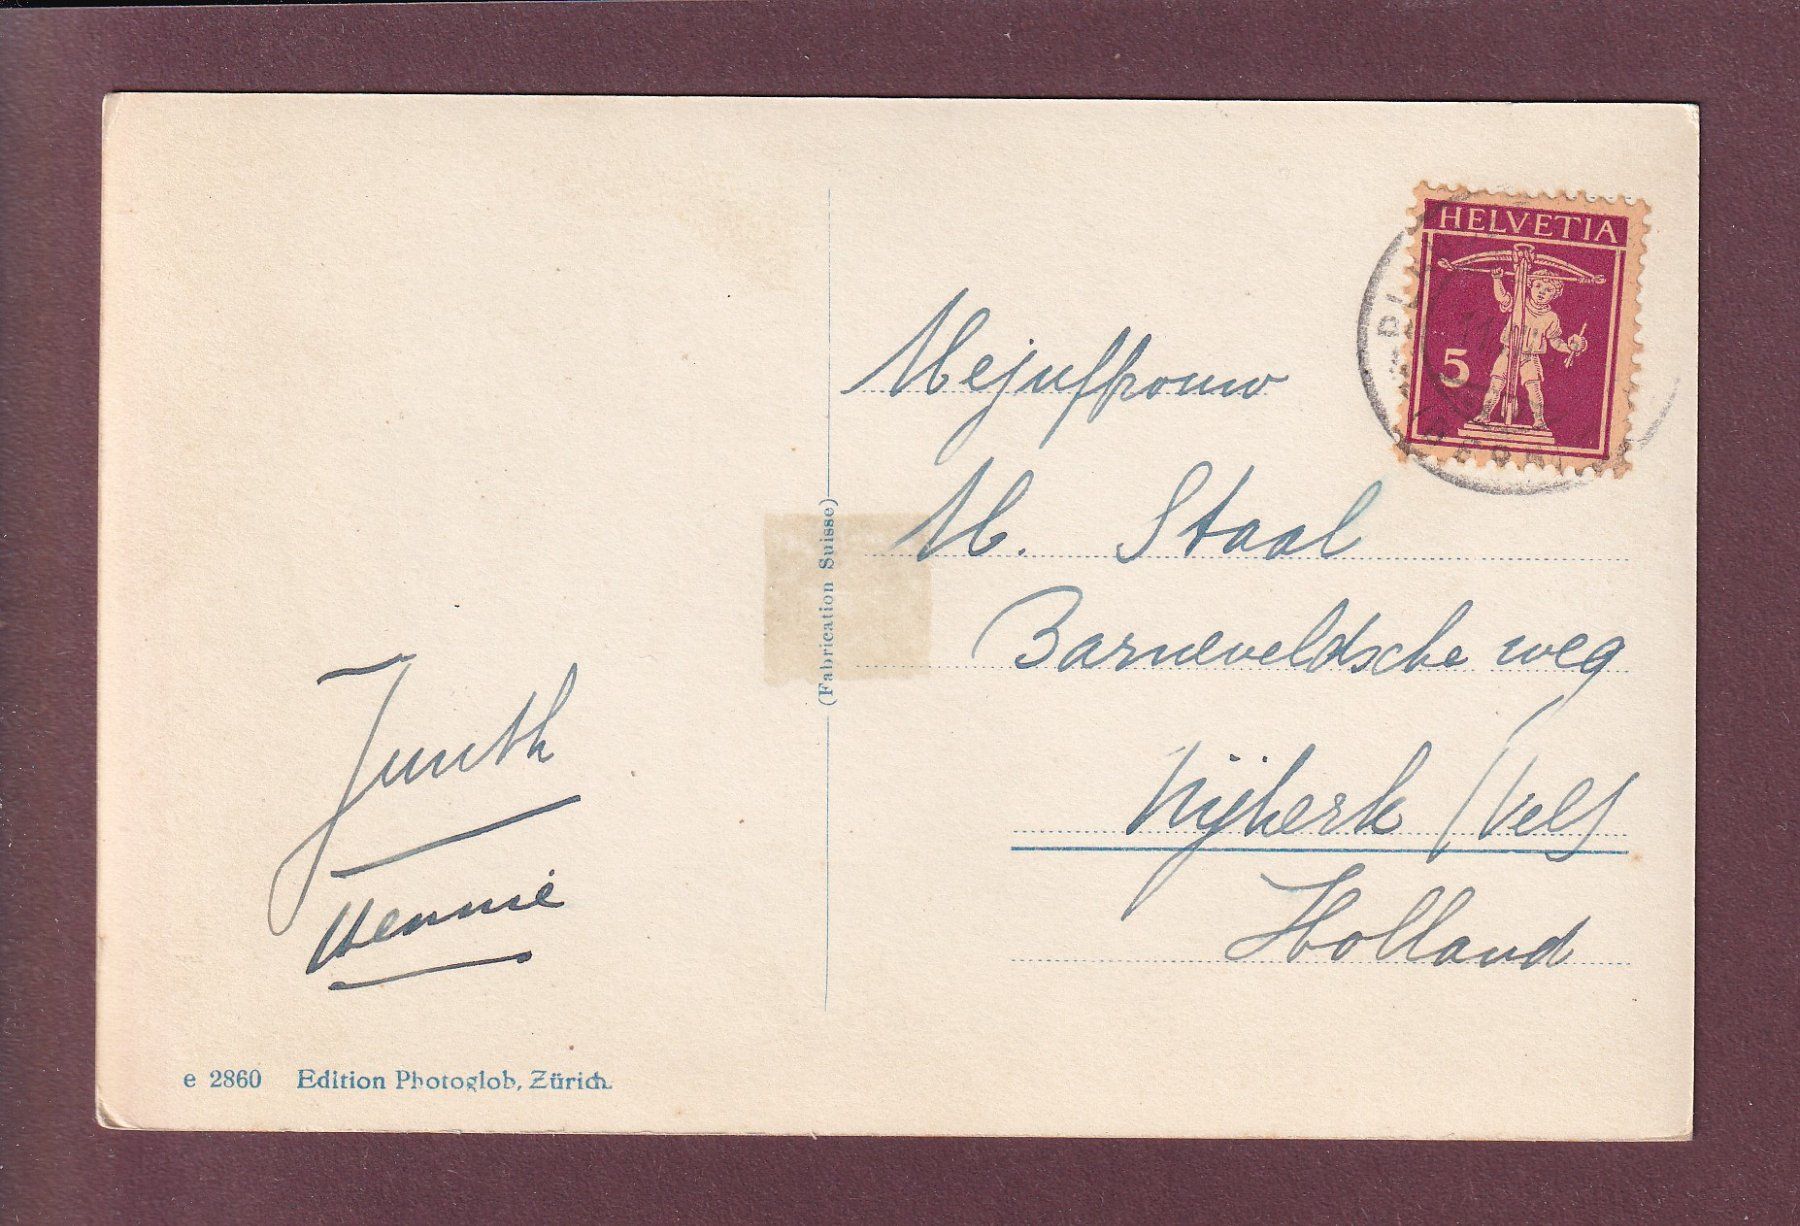 HELVETIA
5
Mejuffrouw
M. Staal
Barneveldsche weg
Nijkerk (Vel)
Holland
(Fabrication Suisse)
Hennie
e 2860 Edition Photoglob, Zürich.